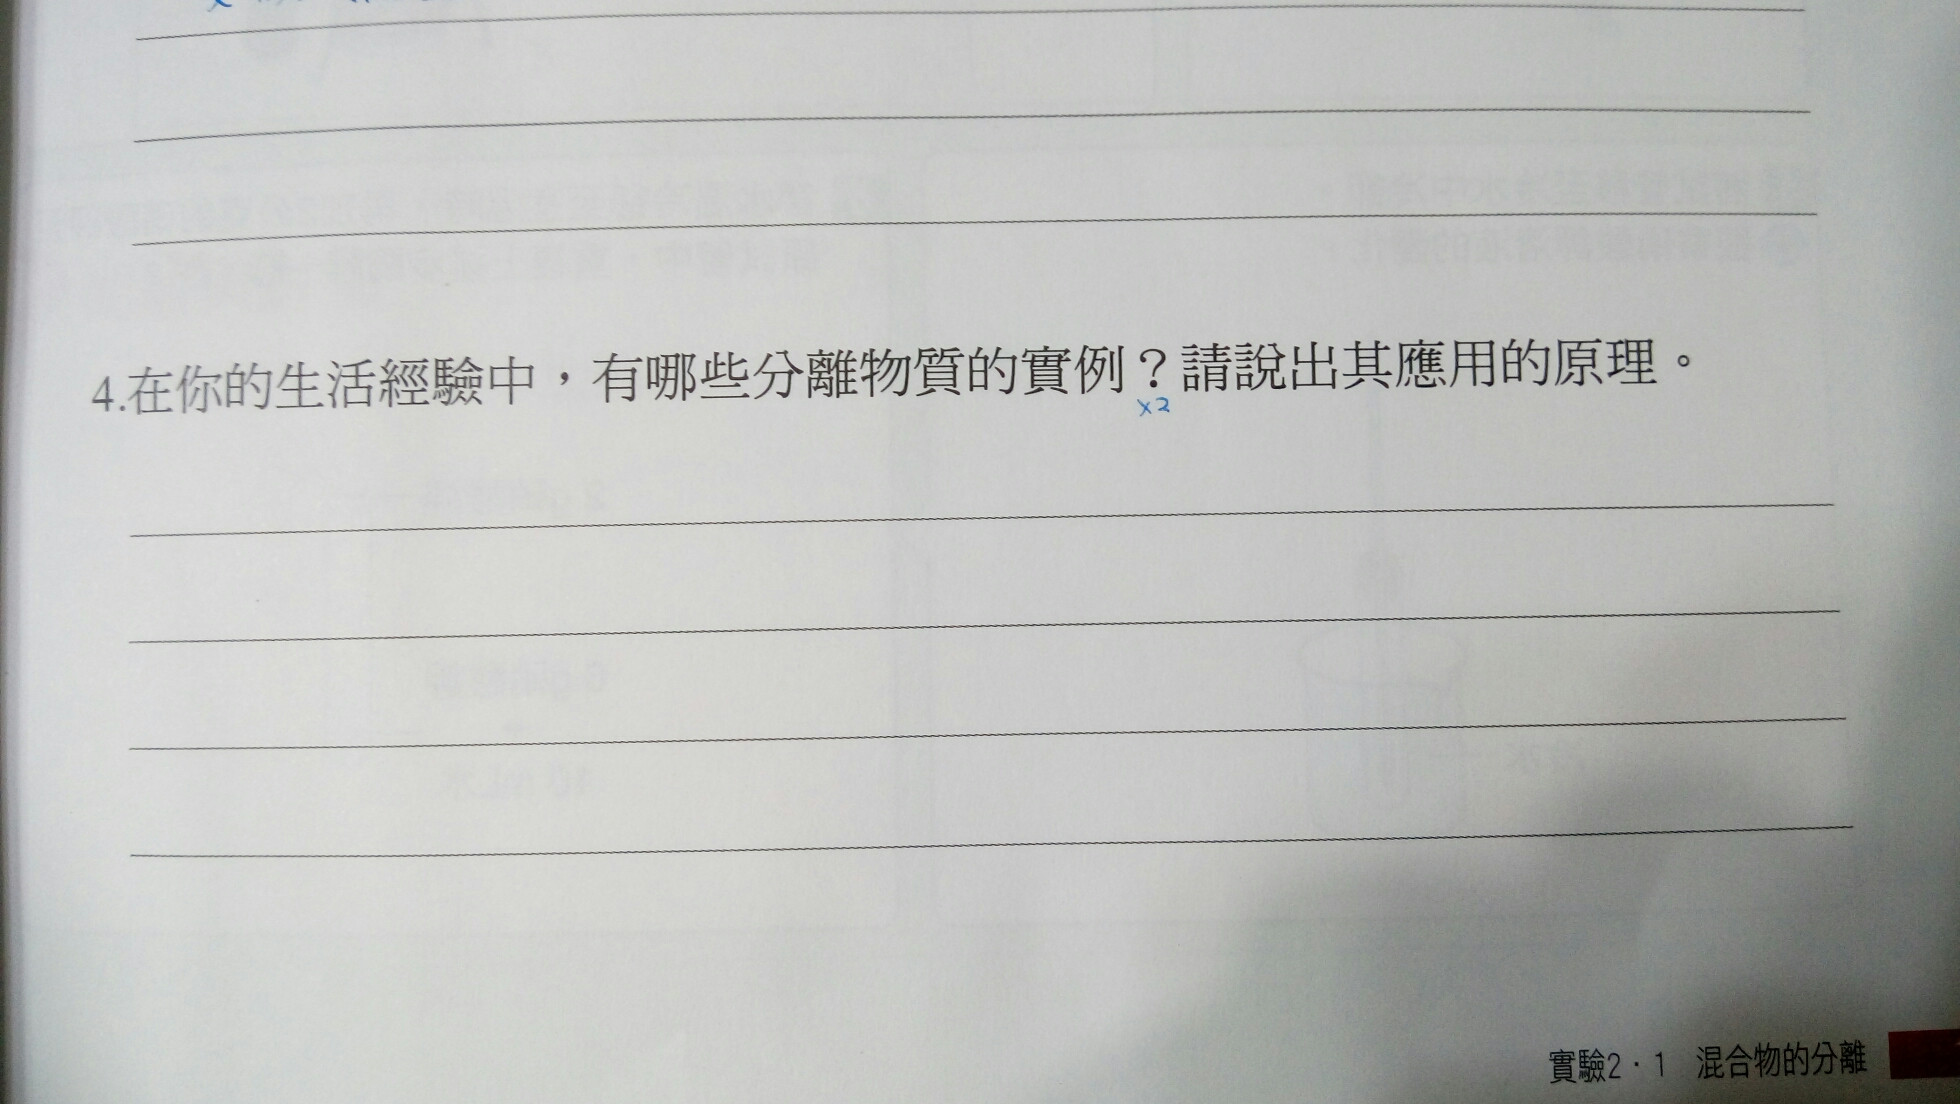 4.在你的生活經驗中，有哪些分離物質的實例？請說出其應用的原理。
x2
實驗2・1 混合物的分離